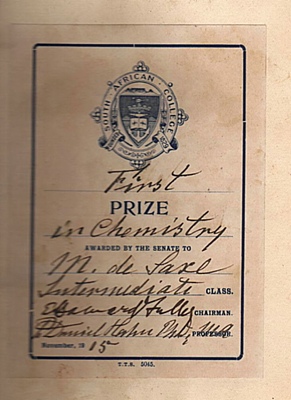 SOUTH AFRICAN COLLEGE
First
PRIZE
in Chemistry
AWARDED BY THE SENATE TO
M. de Saxe
Intermediate CLASS.
Edward CHAIRMAN.
P. Daniel Hahn PhD, MA PROFESSOR.
November, 1915
T.T.S. 5045.